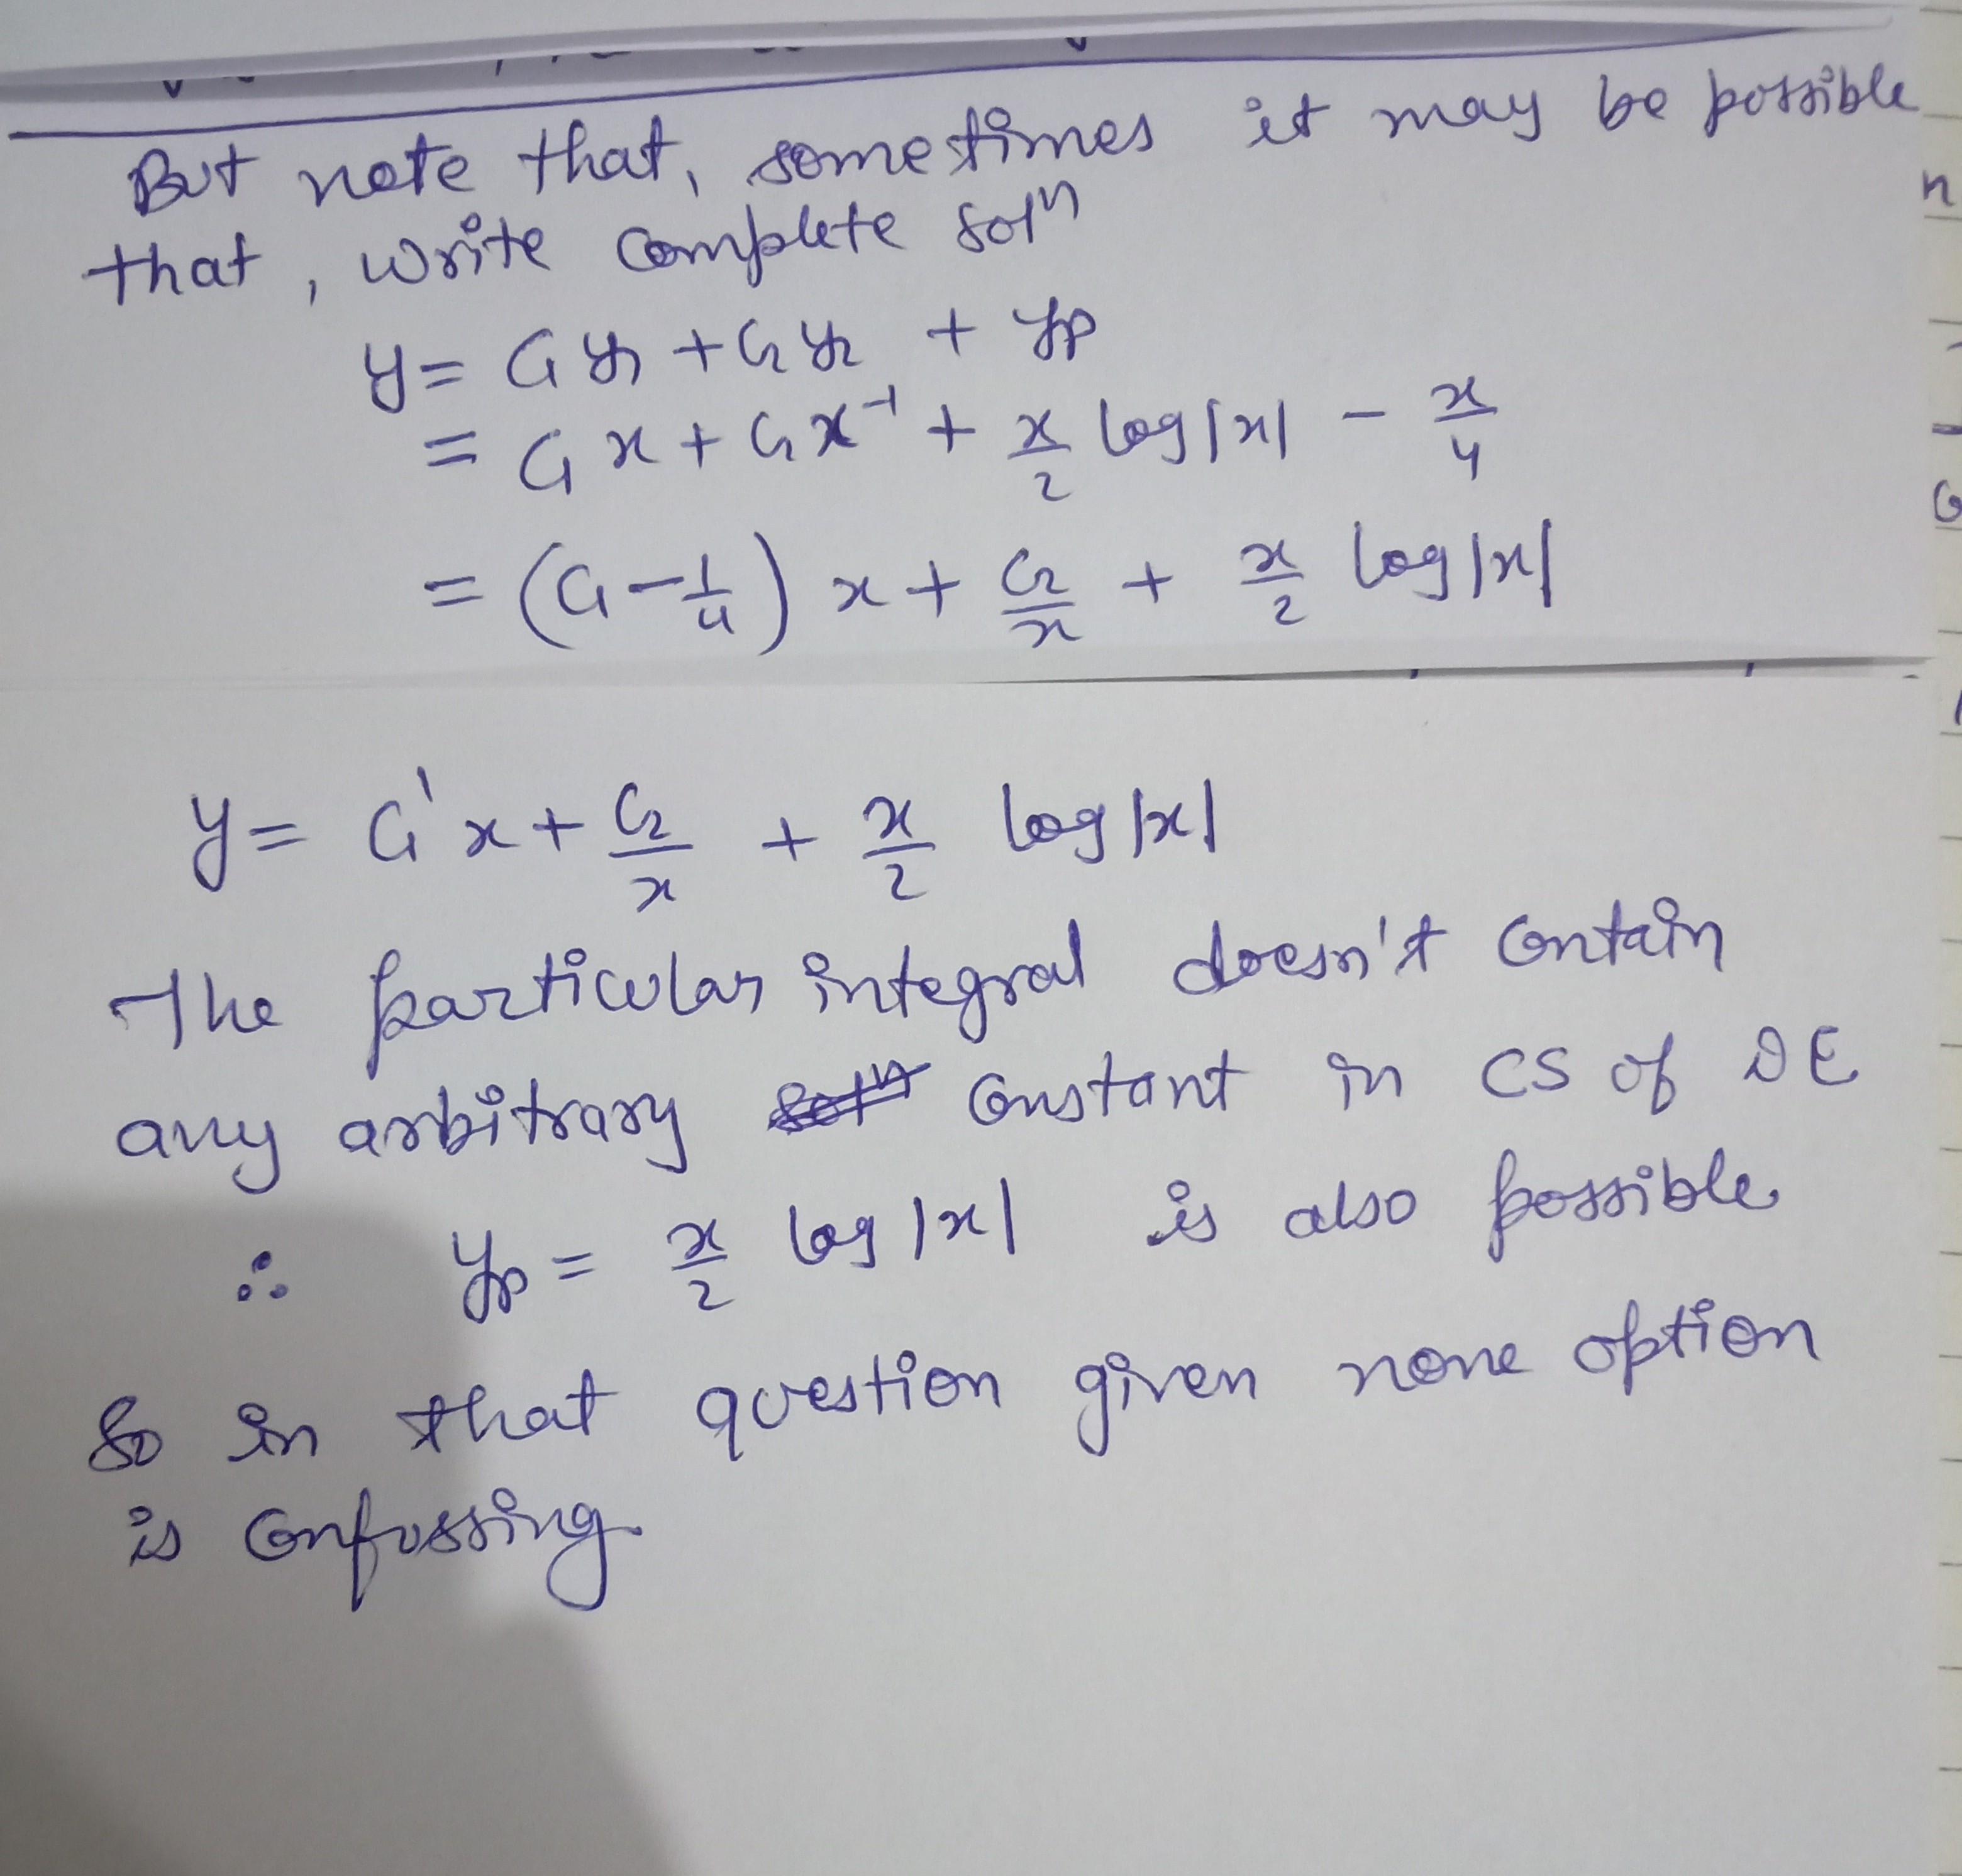 But note that, sometimes it may be possible
that, write complete solⁿ
y = C₁y₁ + C₂y₂ + yp
= C₁x + C₂x⁻¹ + x/2 log|x| - x/4
= (C₁ - 1/4) x + C₂/x + x/2 log|x|
y = C₁'x + C₂/x + x/2 log|x|
The particular integral doesn't contain
any arbitrary constant in CS of DE
∴ yp = x/2 log|x| is also possible
So in that question given none option
is confussing.